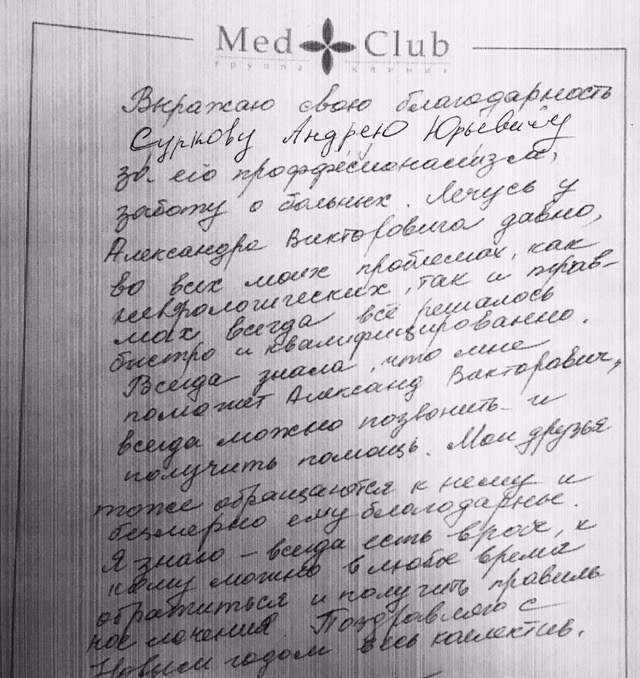 Med Club
группа клиник
Выражаю свою благодарность
Суркову Андрею Юрьевичу
за его проффесионализм,
заботу о больных. Лечусь у
Александра Викторовича давно,
во всех моих проблемах, как
неврологических, так и трав-
мах всегда всё решалось
быстро и квалифицированно.
Всегда знала, что мне
поможет Александ Викторавич,
всегда можно позвонить и
получить помощь. Мои друзья
тоже обращаются к нему и
безмерно ему благодарные.
Я знаю - всегда есть врач, к
кому можно в любое время
обратиться и получить правиль
ное лечения. Поздравляю с
Новым годом весь коллектив.